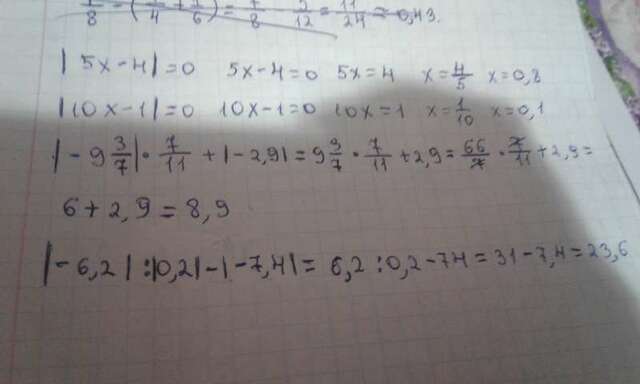 7/8 - (1/4 + 1/6) = 7/8 - 5/12 = 11/24 ≈ 0,43.
|5x-4|=0 5x-4=0 5x=4 x=4/5 x=0,8
|10x-1|=0 10x-1=0 10x=1 x=1/10 x=0,1
|-9 3/7| · 7/11 + |-2,9| = 9 3/7 · 7/11 + 2,9 = 66/7 · 7/11 + 2,9 =
6+2,9=8,9
|-6,2|:|0,2|-|-7,4|= 6,2:0,2-7,4=31-7,4=23,6